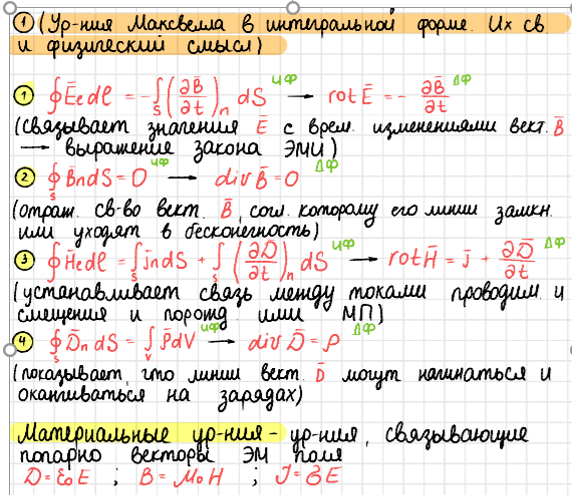 ① (Ур-ния Максвелла в интегральной форме. Их св.
и физический смысл)
① ∮E̅ₑdl = -∫ₛ(∂B̅/∂t)ₙ dS ИФ → rotE̅ = - ∂B̅/∂t ДФ
(связывает значения E̅ с врем. изменениями вект. B̅
→ выражение закона ЭМИ)
② ∮ₛB̅ₙdS = 0 ИФ → divB̅ = 0 ДФ
(отраж. св-во вект. B̅, согл. которому его линии замкн.
или уходят в бесконечность)
③ ∮H̅ₑdl = ∫ₛj̅ₙdS + ∫ₛ(∂D̅/∂t)ₙ dS ИФ → rotH̅ = j̅ + ∂D̅/∂t ДФ
(устанавливает связь между токами проводим. и
смещения и порожд ими МП)
④ ∮ₛD̅ₙdS = ∫ᵥρ̅dV ИФ → div D̅ = ρ ДФ
(показывает, что линии вект. D̅ могут начинаться и
оканчиваться на зарядах)
Материальные ур-ния - ур-ния, связывающие
попарно векторы ЭМ поля
D = ξ₀E ; B = M₀H ; J = σE